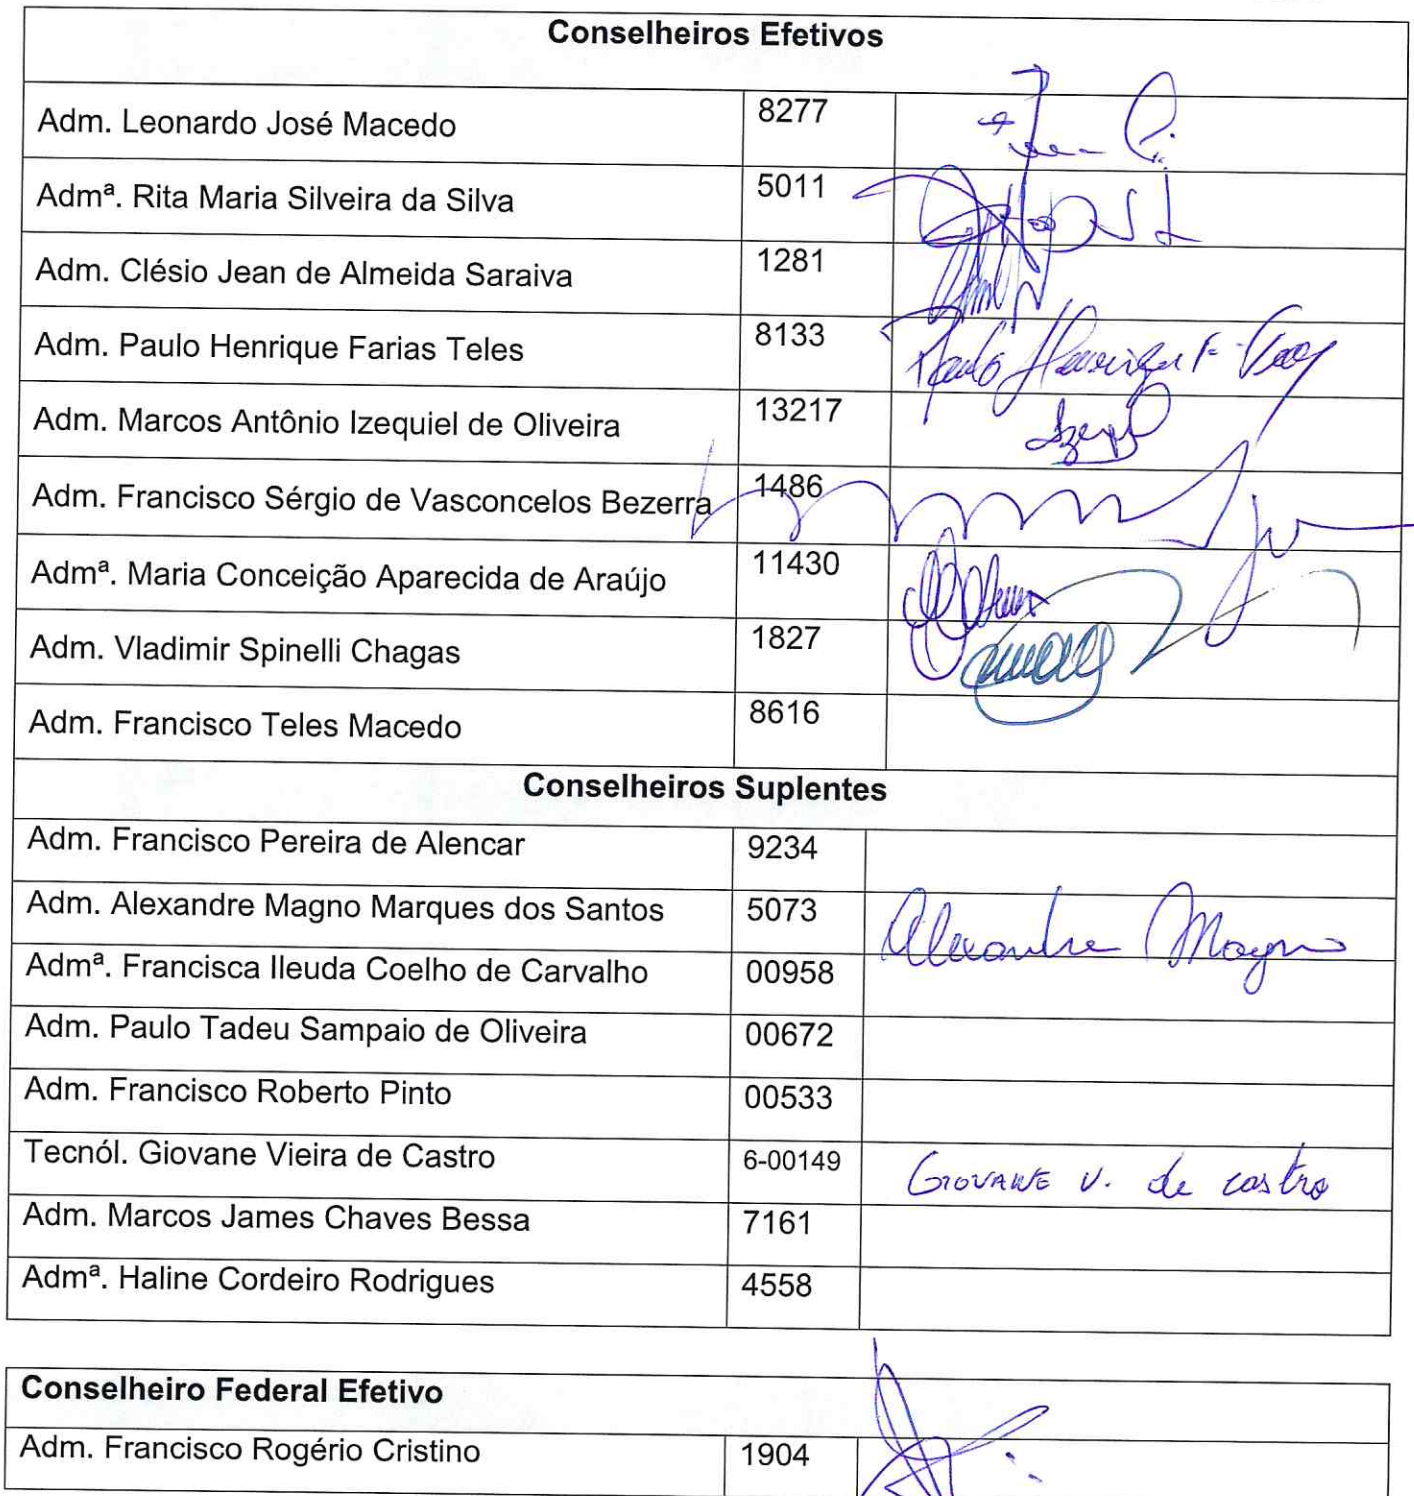 Conselheiros Efetivos
Adm. Leonardo José Macedo 8277
Admª. Rita Maria Silveira da Silva 5011
Adm. Clésio Jean de Almeida Saraiva 1281
Adm. Paulo Henrique Farias Teles 8133 Paulo Henrique F.
Adm. Marcos Antônio Izequiel de Oliveira 13217
Adm. Francisco Sérgio de Vasconcelos Bezerra 1486
Admª. Maria Conceição Aparecida de Araújo 11430
Adm. Vladimir Spinelli Chagas 1827
Adm. Francisco Teles Macedo 8616
Conselheiros Suplentes
Adm. Francisco Pereira de Alencar 9234
Adm. Alexandre Magno Marques dos Santos 5073 Alexandre Magno
Admª. Francisca Ileuda Coelho de Carvalho 00958
Adm. Paulo Tadeu Sampaio de Oliveira 00672
Adm. Francisco Roberto Pinto 00533
Tecnól. Giovane Vieira de Castro 6-00149 GIOVANE V. de castro
Adm. Marcos James Chaves Bessa 7161
Admª. Haline Cordeiro Rodrigues 4558
Conselheiro Federal Efetivo
Adm. Francisco Rogério Cristino 1904